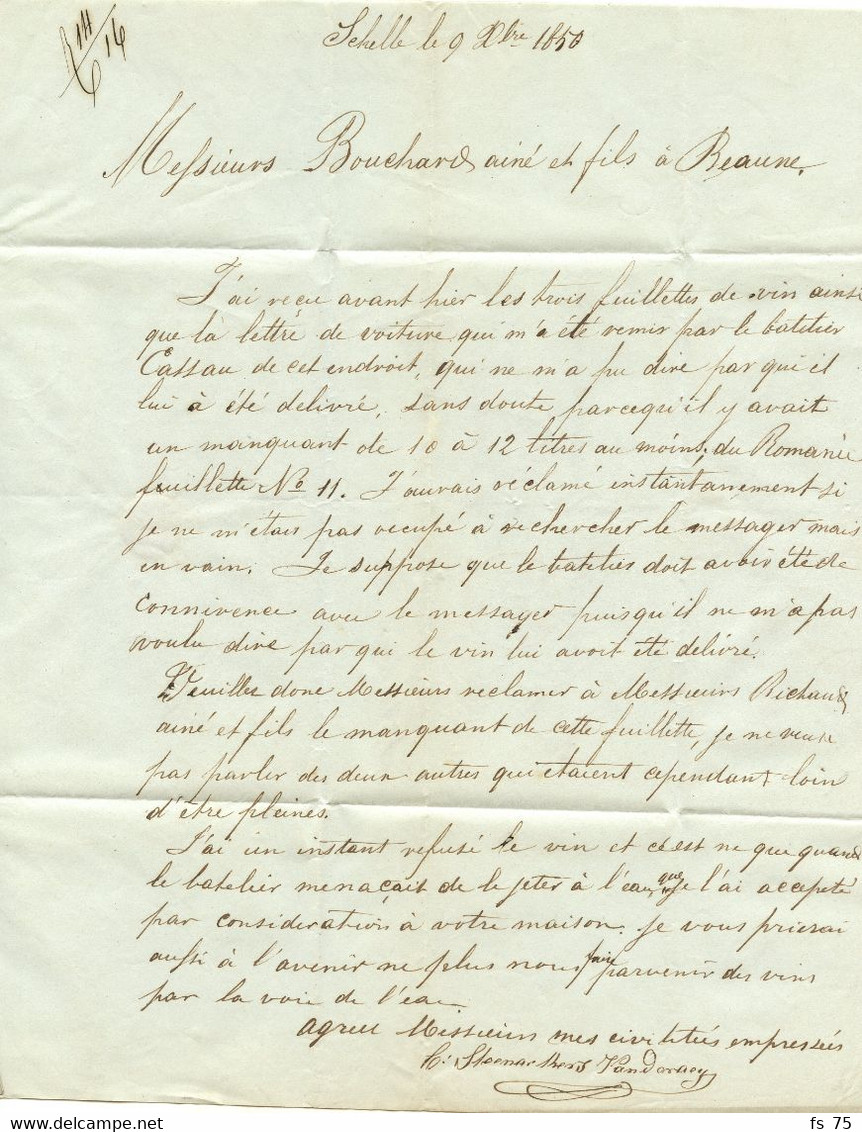 R 14/16
Schelle le 9 Xbre 1850
Messieurs Bouchard ainé et fils à Beaune.
J'ai reçu avant hier les trois feuillettes de vin ainsi
que la lettre de voiture qui m'a été remis par le batelier
Cassau de cet endroit, qui ne m'a pu dire par qui il
lui à été delivré, sans doute parcequ'il y avait
un manquant de 10 à 12 litres au moins, du Romanée
feuillette No 11. J'aurais réclamé instantanement si
je ne m'étais pas occupé à rechercher le messager mais
en vain. Je suppose que le batelier doit avoir été de
connivence avec le messager puisqu'il ne m'a pas
voulu dire par qui le vin lui avoit été délivré.
Veuillez donc Messieurs reclamer à Messieurs Richaud
ainé et fils le manquant de cette feuillette, je ne veux
pas parler des deux autres qui étaient cependant loin
d'être pleines.
J'ai un instant refusé le vin et c'est ne que quand
le batelier menaçait de le jeter à l'eau que je l'ai accepté
par consideration à votre maison. je vous prierai
aussi à l'avenir ne plus nous faire parvenir des vins
par la voie de l'eau
agréez Messieurs mes civilités empressées
C: Steenackers Vanderney
fs 75